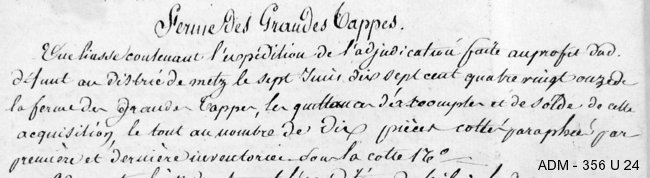 Ferme des Grandes Tappes.
Une liasse contenant l'expédition de l'adjudication faite au profit dud.
défunt au district de metz le sept Juin dix sept cent quatre vingt onze de
la ferme des grandes Tappes, les quittances d'acomptes et de solde de cette
acquisition, le tout au nombre de dix pièces cotté paraphé par
première et dernière inventoriée sous la cotte 17e
ADM - 356 U 24